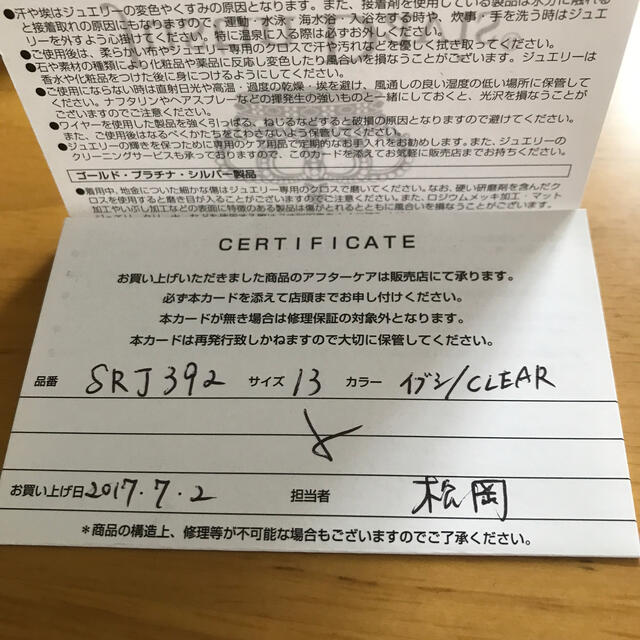 ●汗や埃はジュエリーの変色やくすみの原因となります。また、接着剤を使用している製品は水分に触れると
接着取れの原因にもなりますので、運動・水泳・海水浴・入浴をする時や、炊事・手を洗う時はジュエ
リーを外すよう心掛けてください。特に温泉に入る際は必ずお外しください。
●ご使用後は、柔らかい布やジュエリー専用のクロスで汗や汚れなどを優しく拭き取ってください。
●石や素材の種類により化粧品や薬品に反応し変色したり風合いを損なうことがございます。ジュエリーは
香水や化粧品をつけた後に身につけるようにしてください。
●ご使用にならない時は直射日光や高温・過度の乾燥・埃を避け、風通しの良い湿度の低い場所に保管して
ください。ナフタリンやヘアスプレーなどの揮発生の強いものと一緒にしておくと、光沢を損なうことが
ございますのでご注意ください。
●ワイヤーを使用した製品を強く引っぱる、ねじるなどすると破損の原因となりますので避けてください。
また、ご使用後はなるべくかたちをこわさないよう保管してください。
●ジュエリーの輝きを保つために専用のケア用品で定期的なお手入れをお勧めします。また、ジュエリーの
クリーニングサービスも承っておりますので、このカードを添えてお気軽に販売店までお持ちください。
ゴールド・プラチナ・シルバー製品
●着用中、地金についた細かな傷はジュエリー専用のクロスで磨いてください。なお、硬い研磨剤を含んだク
ロスを使用すると磨き目が入ることがございますのでご注意ください。また、ロジウムメッキ加工・マット
加工やいぶし加工などの表面に特徴のある製品は傷がとれるとともに風合いを損なうことがございます。
CERTIFICATE
お買い上げいただきました商品のアフターケアは販売店にて承ります。
必ず本カードを添えて店頭までお申し付けください。
本カードが無き場合は修理保証の対象外となります。
本カードは再発行致しかねますので大切に保管してください。
品番 SRJ392 サイズ 13 カラー イブシ/CLEAR
お買い上げ日 2017.7.2 担当者 松岡
*商品の構造上、修理等が不可能な場合もございますのでご了承ください。